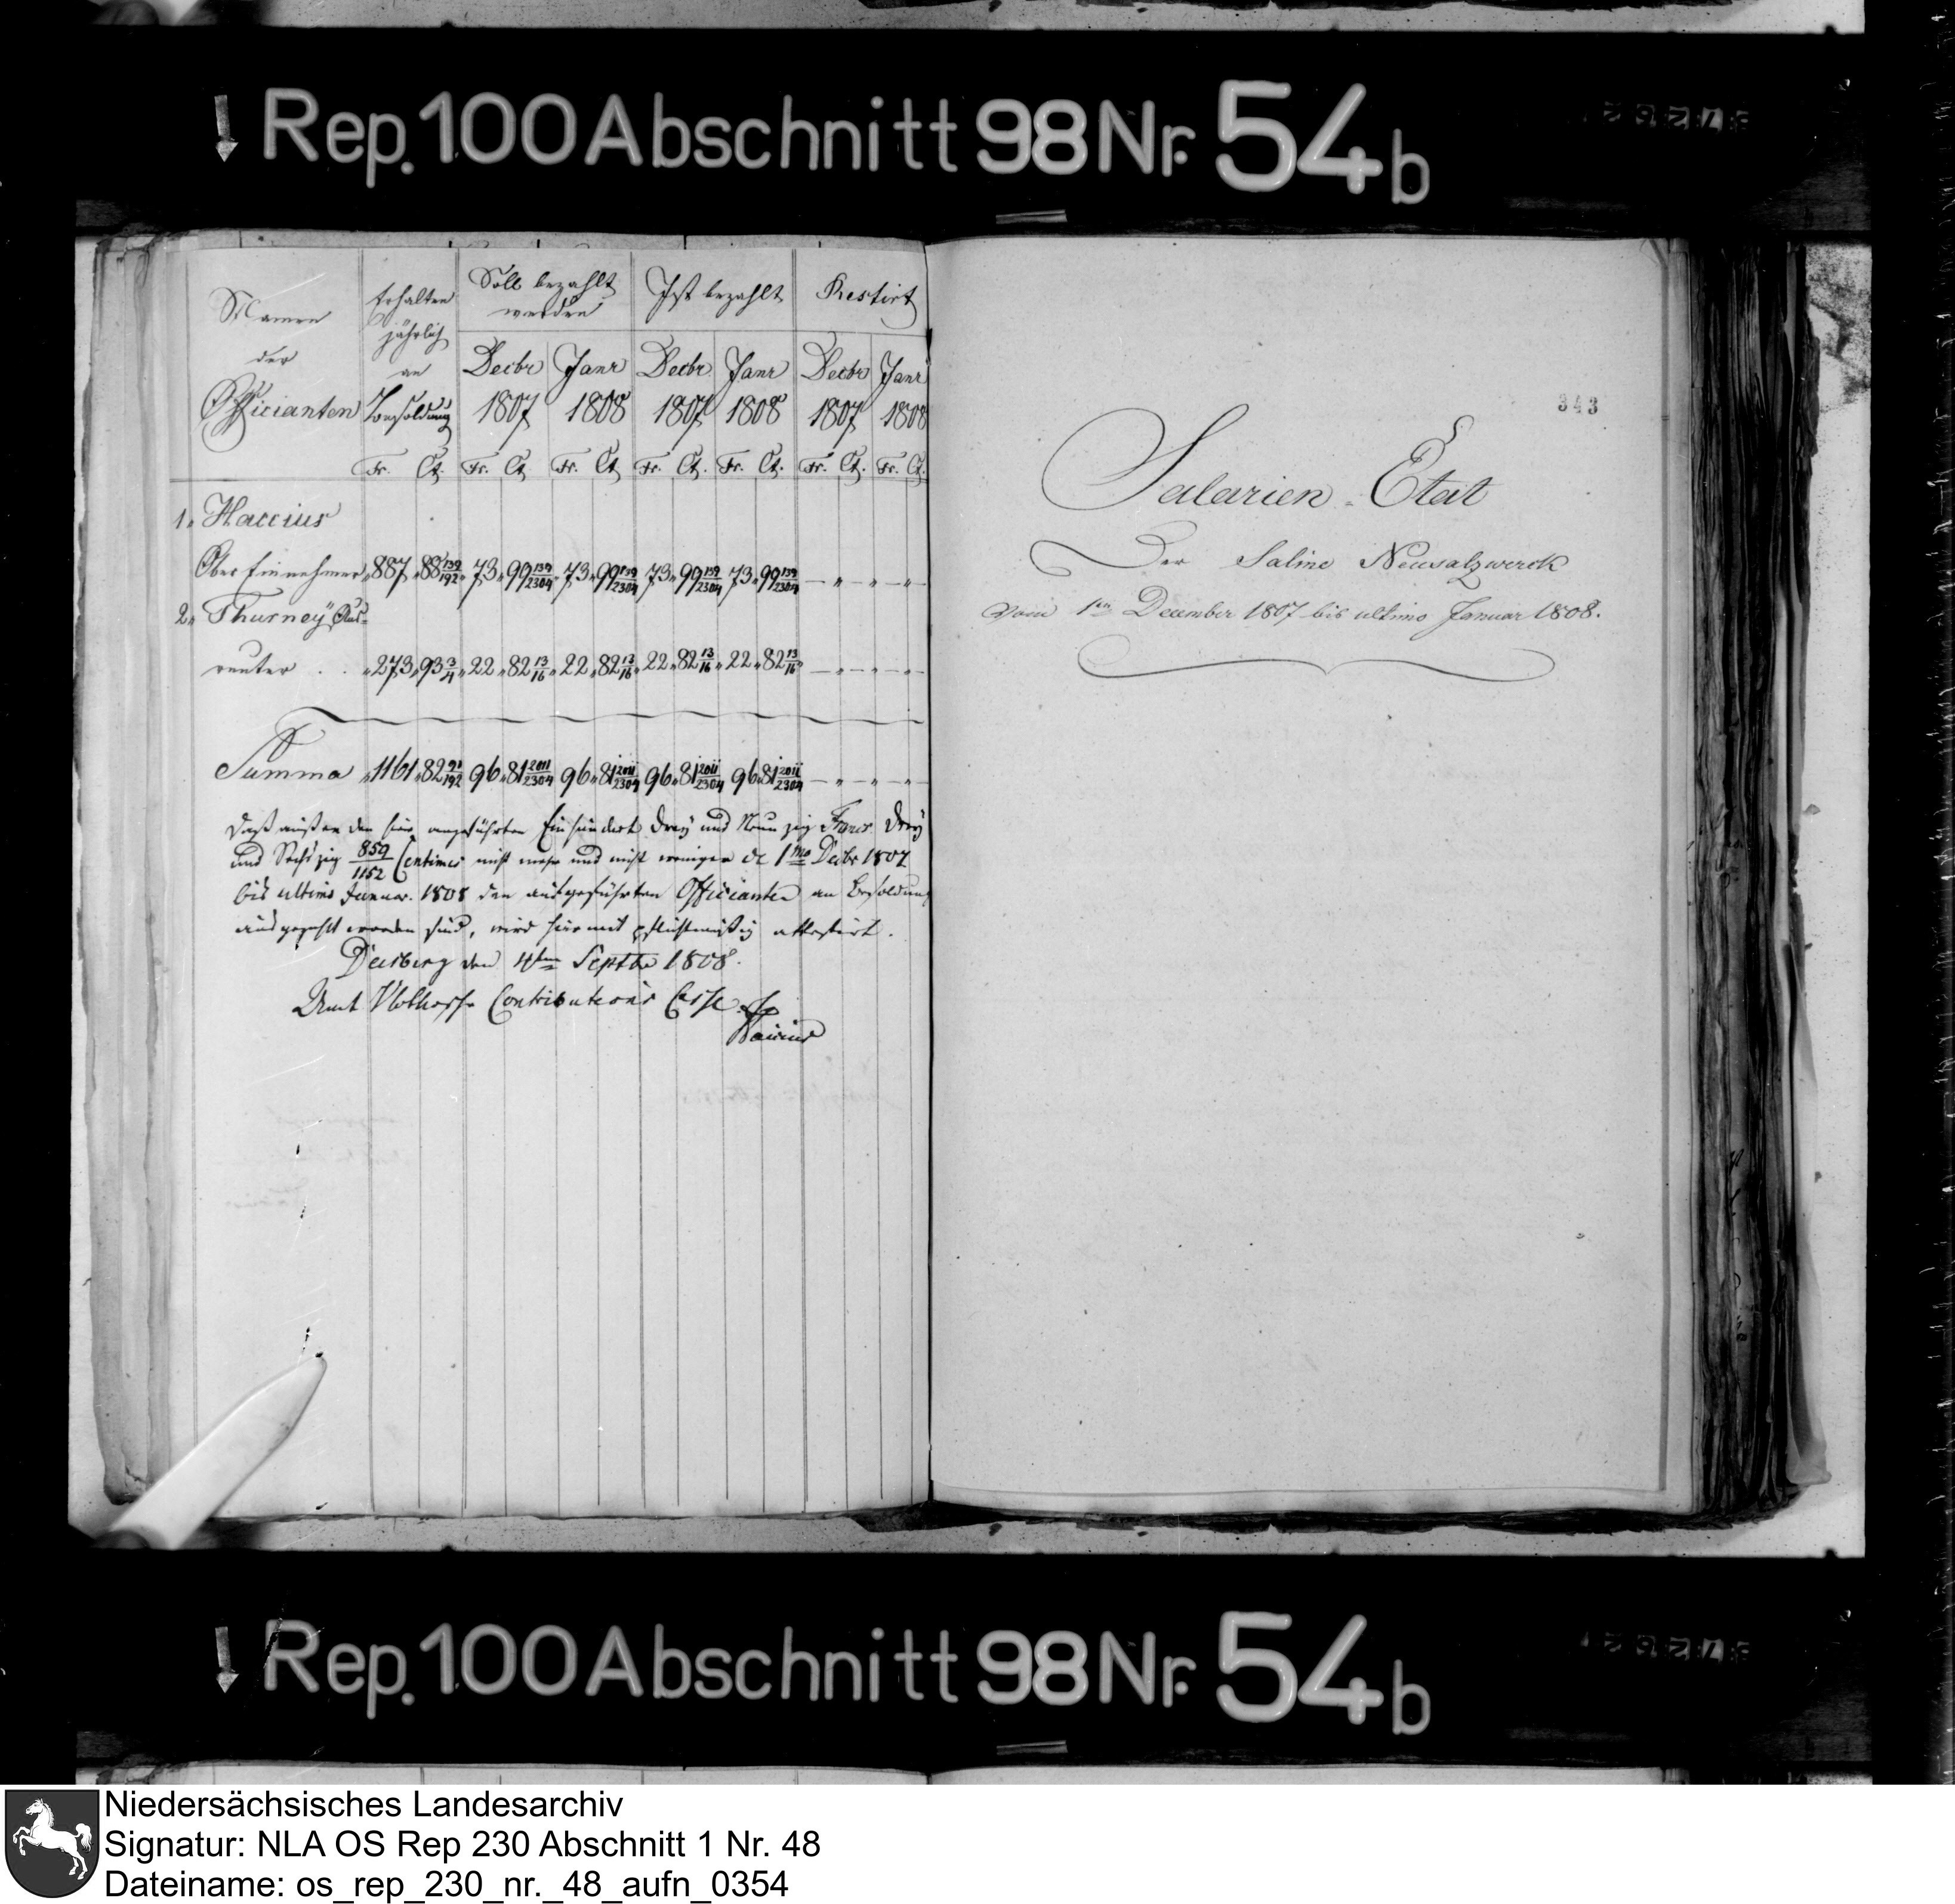 Rep. 100 Abschnitt 98 Nr. 54b
Namen der Officianten
Erhalten jährlich an Besoldung
Soll bezahlt werden
Ist bezahlt
Restirt
Decbr 1807 Janr 1808 Decbr 1807 Janr 1808 Decbr 1807 Janr 1808
Fr. Ct. Fr. Ct. Fr. Ct. Fr. Ct. Fr. Ct. Fr. Ct. Fr. Ct.
1. Haccius
Ober Einnehmer 887 88 139/192 73 99 139/2304 73 99 139/2304 73 99 139/2304 73 99 139/2304 — " — " — " —
2. Thurney, Aus-
reuter . . 273 93 3/4 22 82 13/16 22 82 13/16 22 82 13/16 22 82 13/16 — " — " — " —
Summa 1161 82 91/192 96 81 2011/2304 96 81 2011/2304 96 81 2011/2304 96 81 2011/2304 — " — " — " —
Daß außer den hier angeführten Einhundert Drey und Neunzig Francs Drey
und Sechszig 859/1152 Centimes nicht mehr und nicht weniger de 1mo Decbr 1807
bis ultimo Januar. 1808 den aufgeführten Officianten an Besoldung
ausgezahlt worden sind, wird hiermit pflichtmäßig attestirt.
den 4ten Septbr 1808.
Amt Vlothosche Contributions Casse
Haccius
343
Salarien-Etat
Der Saline Neusalzwerck
vom 1ten December 1807 bis ultimo Januar 1808.
Rep. 100 Abschnitt 98 Nr. 54b
Niedersächsisches Landesarchiv
Signatur: NLA OS Rep 230 Abschnitt 1 Nr. 48
Dateiname: os_rep_230_nr._48_aufn_0354